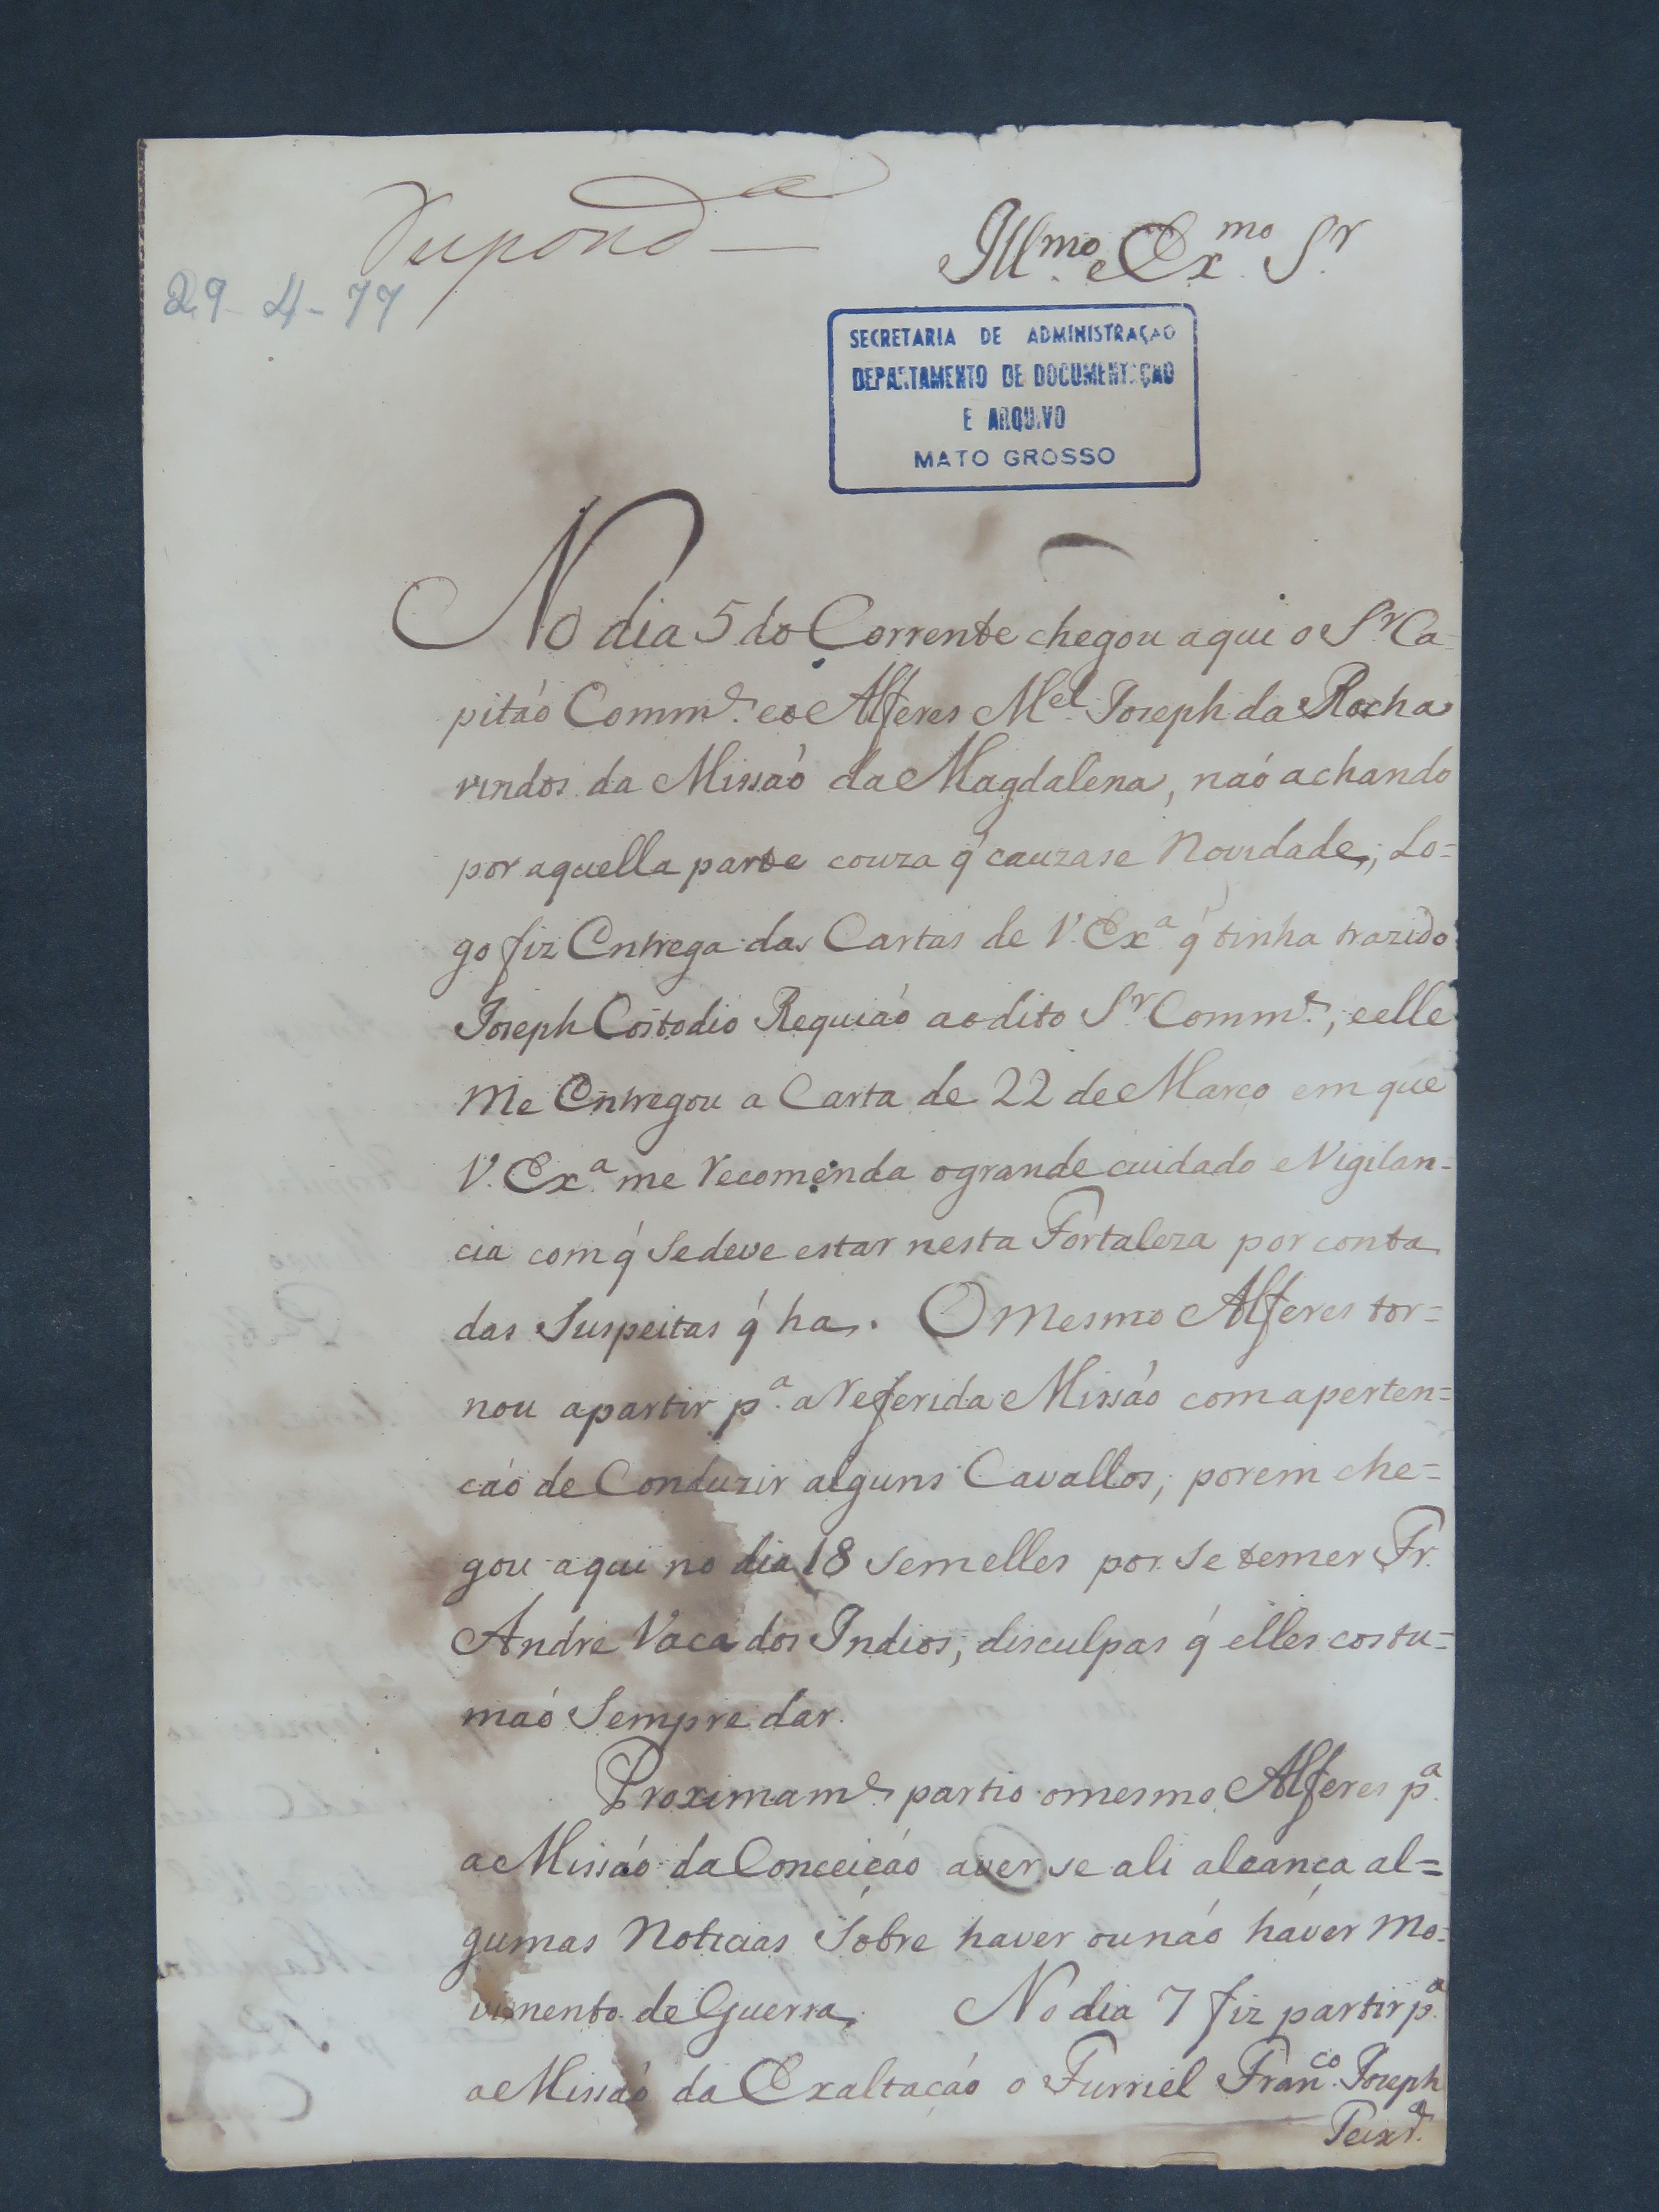 Respond.ᵃ
Ill.ᵐᵒ e Ex.ᵐᵒ S.ʳ
29-4-77
SECRETARIA DE ADMINISTRAÇÃO
DEPARTAMENTO DE DOCUMENTAÇÃO
E ARQUIVO
MATO GROSSO
No dia 5 do Corrente chegou aqui o S.ʳ Ca-
pitáo Comm.ᵉ eo Alferes M.ᵉˡ Joseph da Rocha
vindos da Missaó da Magdalena, naó achando
por aquella parte couza q́ cauzase Novidade; Lo=
go fiz Entrega das Cartas de V. Ex.ᵃ q́ tinha trazido
Joseph Costodio Requiáo ao dito S.ʳ Comm.ᵉ, eelle
Me Entregou a Carta de 22 de Marco em que
V. Ex.ᵃ me recomenda ogrande cuidado eVigilan-
cia com q́ Sedeve estar nesta Fortaleza por conta
das Suspeitas q́ ha. O Mesmo Alferes tor=
nou apartir p.ᵃ a referida Missáo comaperten=
cáo de Conduzir alguns Cavallos; porem che=
gou aqui no dia 18 Semelles por se temer Fr.
Andre Vaca dos Indios, disculpas q́ elles costu=
maó Sempre dar.
Proximam.ᵉ partio omesmo Alferes p.ᵃ
a Missáo da Conceicáo aver se ali alcanca al=
gumas Noticias Sobre haver ounáo háver Mo-
vimento de Guerra. No dia 7 fiz partir p.ᵃ
a Missáo da Exaltacáo o Furriel Fran.ᶜᵒ Joseph